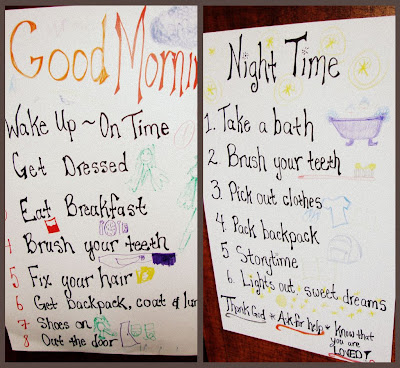 Good Mornin
Wake Up ~ On Time
Get Dressed
Eat Breakfast
4 Brush your teeth
5 Fix your hair
6 Get backpack, coat & lun
7 Shoes on
8 Out the door
Night Time
1. Take a bath
2. Brush your teeth
3. Pick out clothes
4. Pack backpack
5 Storytime
6. Lights out, sweet dreams
Thank God * Ask for help * Know that
you are
LOVED!